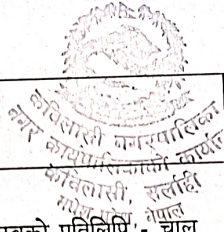 कविलासी नगरपालिका
नगर कार्यपालिकाको कार्यालय
कविलासी, सर्लाही
नेपाल
प्रतिलिपि - चालु